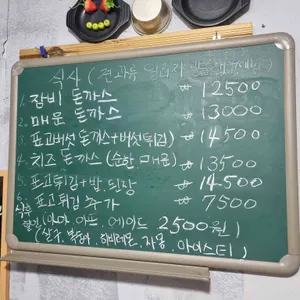 식사 (견과류 알러지
1. 잠비 돈까스 ₩ 12500
2. 매운 돈까스 ₩ 13000
3. 표고버섯 돈까스+버섯튀김 ₩ 14500
4. 치즈 돈까스 (순한, 매운) ₩ 13500
5. 표고튀김+밥, 된장 ₩ 14500
6. 표고튀김 추가 7500
(아아, 아뜨, 에이드 2500원)
(살구, 허니레몬, 자몽, 아이스티)